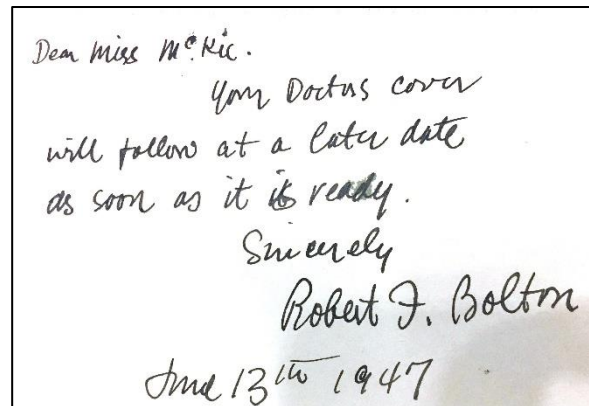 Dear Miss McKic.
Your Doctors cover
will follow at a later date
as soon as it is ready.
Sincerely
Robert F. Bolton
June 13th 1947